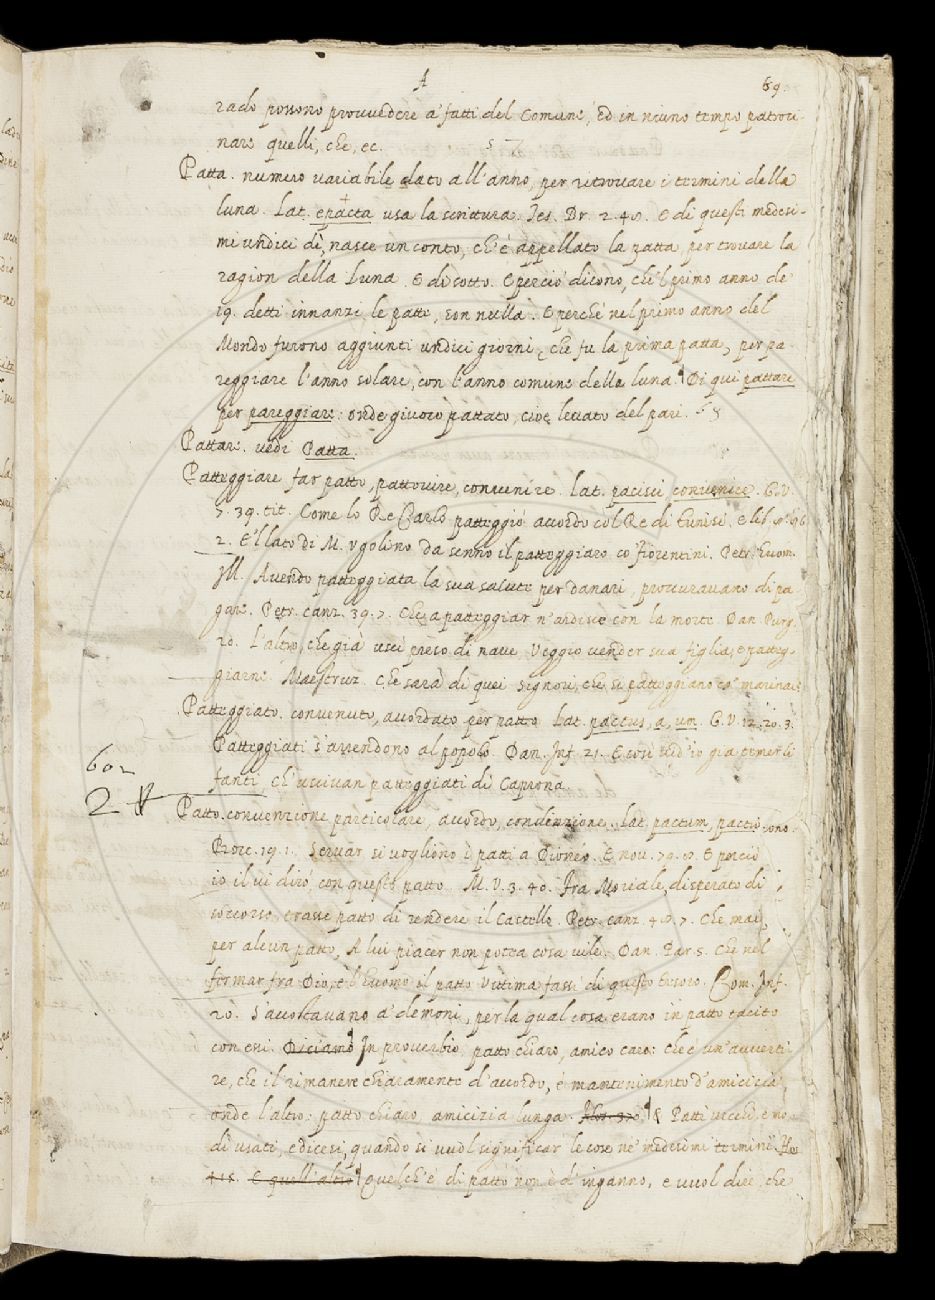 A 69
rado possono provvedere a' fatti del Comune, Ed in niuno tempo patroci-
nare quelli, che, ec.
Patta. numero variabile dato all'anno, per ritrovare i termini della
luna. Lat. epacta usa la scrittura. Tes. Br. 2. 48. E di questi medesi-
mi undici dì, nasce un conto, ch'è appellato la patta, per trovare la
ragion della Luna. E di sotto. E perciò dicono, che 'l primo anno de
19. detti innanzi, le patte, son nulla. E perchè nel primo anno del
Mondo furono aggiunti undici giorni, che fu la prima patta, per pa-
reggiare l'anno solare, con l'anno comune della luna. Di qui pattare
per pareggiare: onde giuoco pattato, cioè levato del pari.
Pattare. vedi Patta.
Patteggiare far patto, pattovire, convenire. Lat. pacisci convenire. G.V.
7. 39. tit. Come lo Re Carlo patteggiò accordo col Re di Tunisi. E lib.
2. E 'l lato di M. Ugolino da senno il patteggiaro co' fiorentini. Petr. huom.
Ill. Avendo patteggiata la sua salute per danari, procuravano di pa-
gare. Petr. canz. 39. 7. Che a patteggiar n'ardisce con la morte. Dan. Purg.
20. L'altro, che già uscì preso di nave, Veggio vender sua figlia, e patteg-
giarne. Maestruz. Che sarà di quei Signori, che si patteggiano co' marinai
Patteggiato. convenuto, accordato per patto. Lat. pactus, a, um. G.V. 12. 20. 3.
Patteggiati s'arrendono al popolo. Dan. Inf. 21. E così vid' io già temer li
fanti, Ch'uscivan patteggiati di Caprona.
602
2
Patto. convenzione particolare, accordo, convenzione. Lat. pactum, pactio, onis.
Bocc. 19. 1. Servar si vogliono i patti a Dioneo. E nov. 79. E perciò
io il vi dirò, con questo patto. M.V. 3. 40. Fra Moriale, disperato di
soccorso, trasse patto di rendere il Castello. Petr. canz. 48. 7. Che mai,
per alcun patto, A lui piacer non potea cosa vile. Dan. Par. 5. Che nel
fermar fra Dio, e l'huomo il patto Vittima fassi di questo tesoro. Com. Inf.
20. S'accostavano a' demoni, per la qual cosa erano in patto tacito
con essi. Diciamo In proverbio, patto chiaro, amico caro: che è un'avverti-
re, che il rimanere chiaramente d'accordo, è mantenimento d'amicizia,
onde l'altro: patto chiaro, amicizia lunga. Flos. 370. Patti vecchi, e mo-
di usati, e dicesi, quando si vuol significar le cose ne' medesimi termini. Flos
415. E quell'altro Quel ch'è di patto non è d'inganno, e vuol dire, che